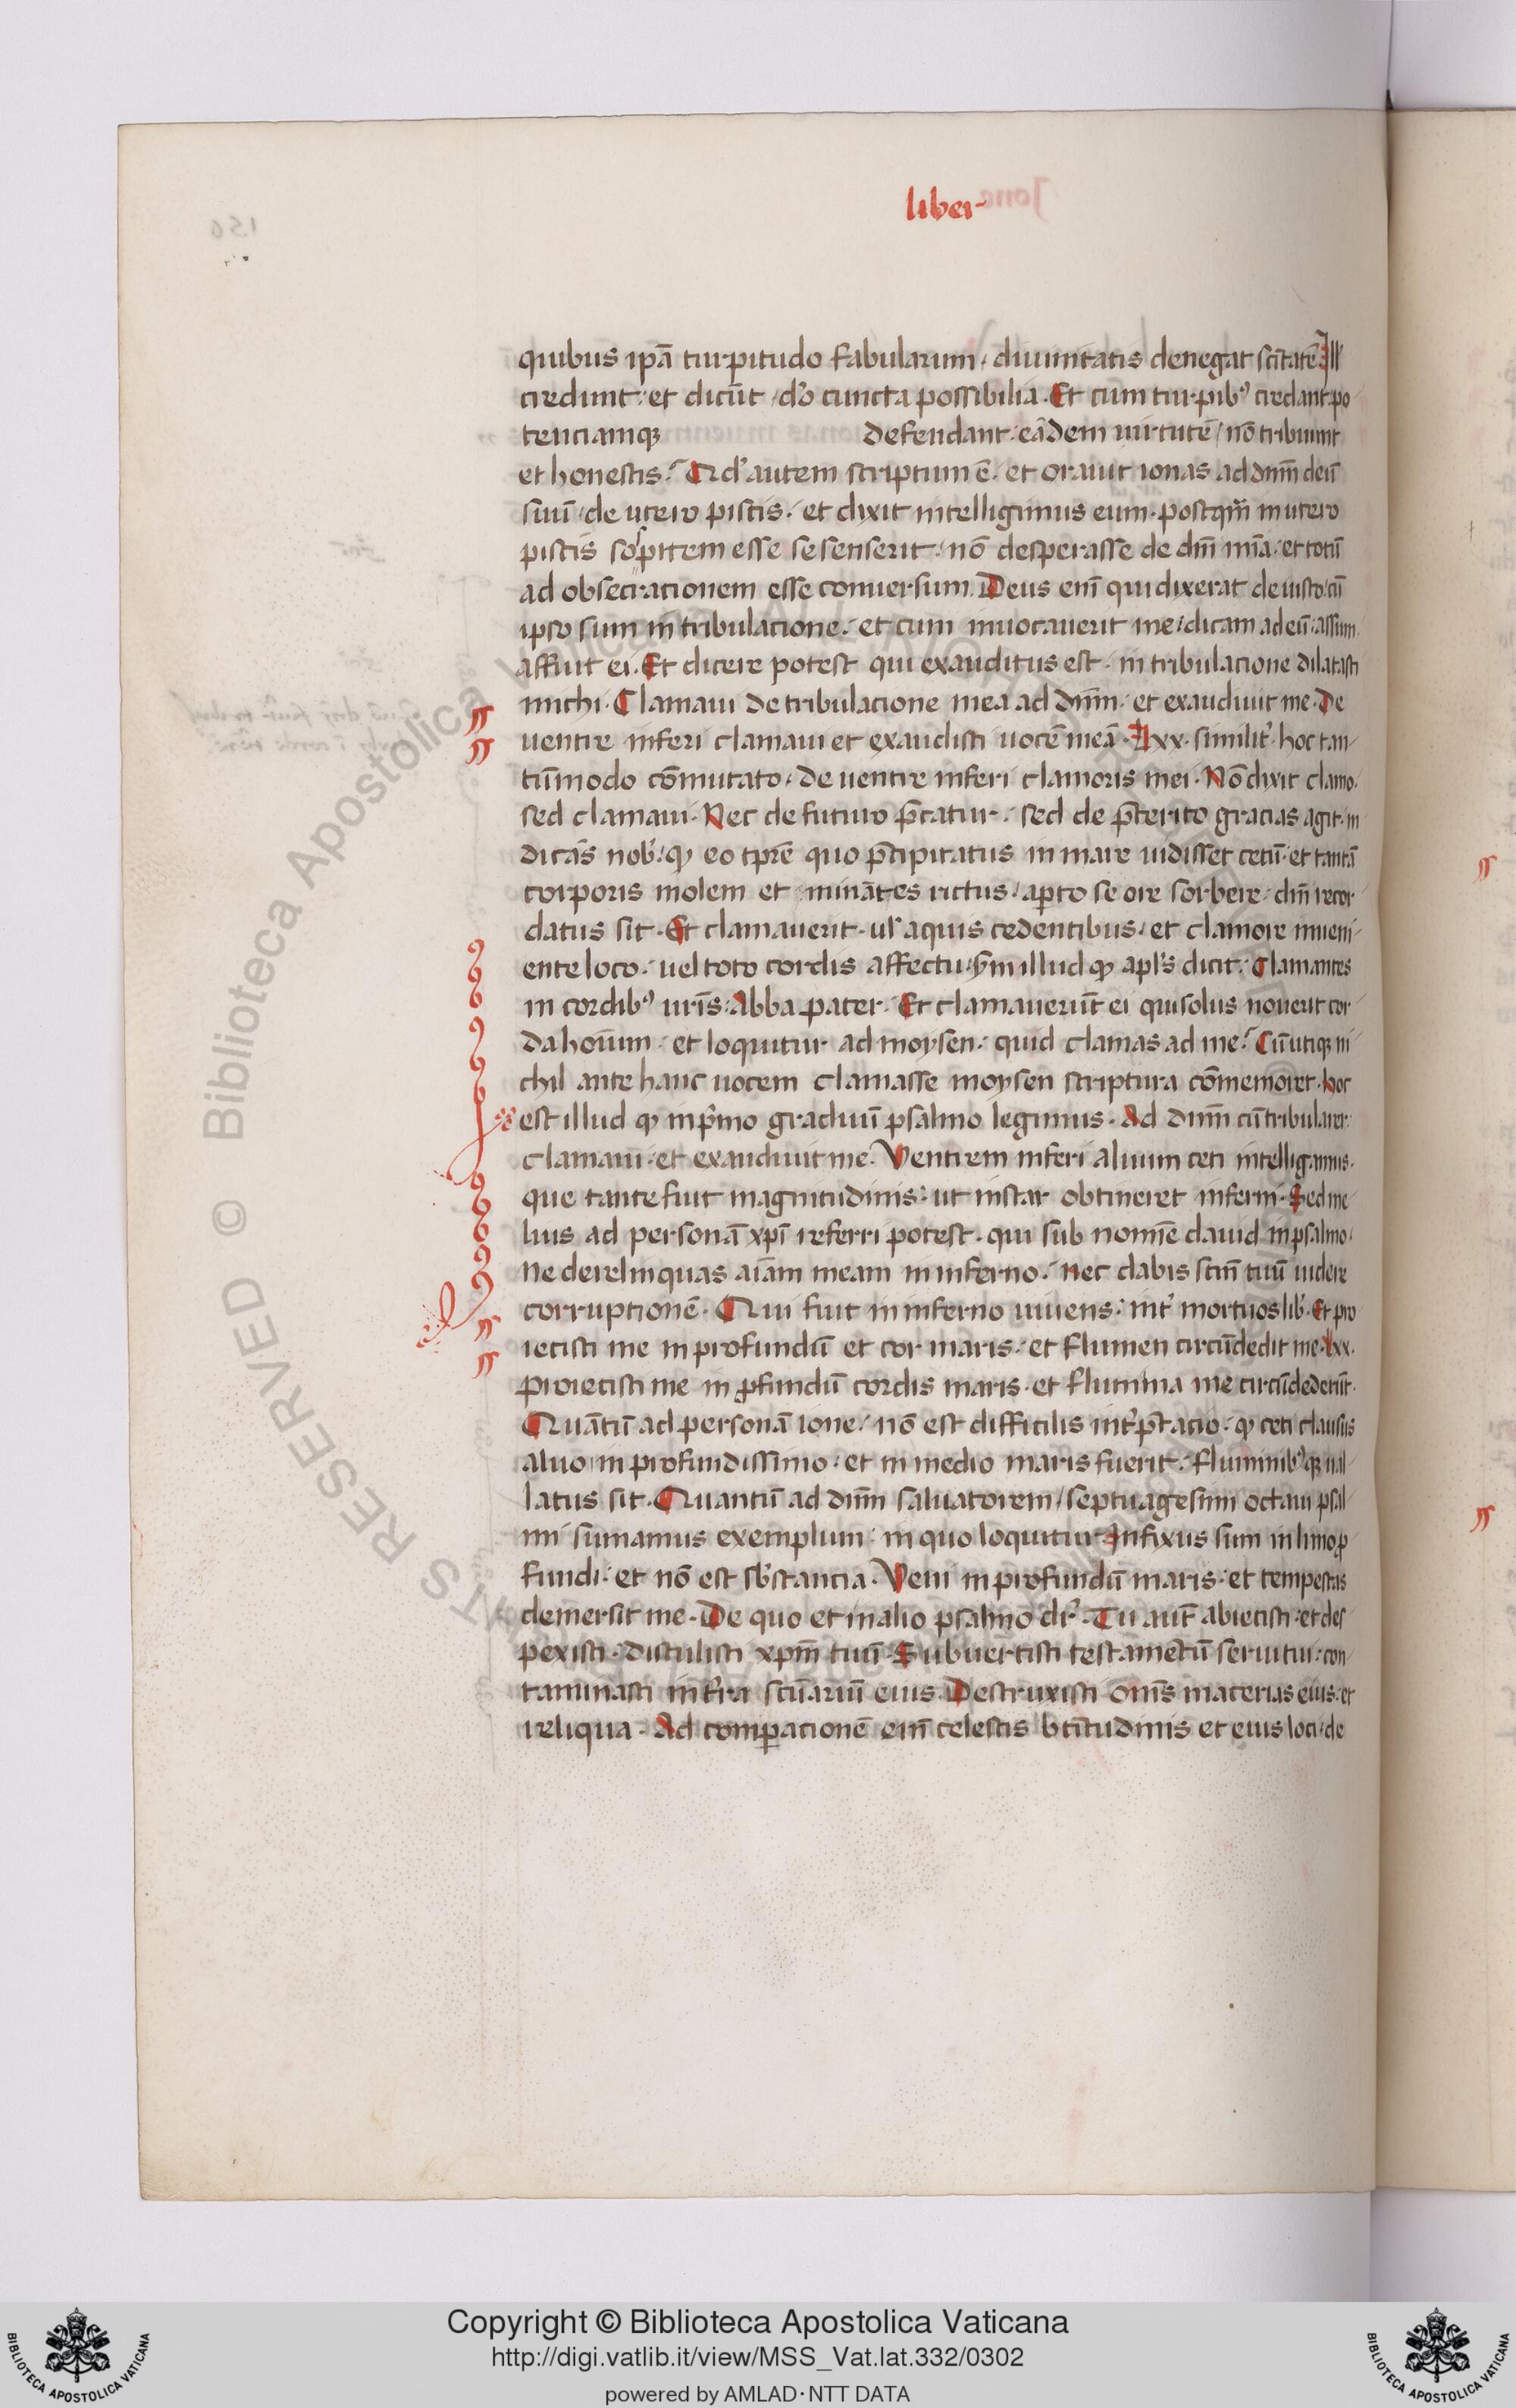 liber
quibus ipā turpitudo fabularum / diuinitatis denegat scītatē. Ill
credunt · et dicūt / d'o cuncta possibilia. Et cum turpib' credant · po
tenciamq3 defendant · eādem uirtutē / nō tribuunt
et honestis. Q d' autem scriptum ē · et orauit ionas ad dnm̄ deū
suū / de utero piscis · et dixit intelligimus eum · postqm̄ in utero
piscis sospitem esse se senserit · nō desperasse de dnī mīa · et totū
ad obsecracionem esse conuersum. Deus enī qui dixerat de iusto / cū
ipso sum in tribulacione · et cum inuocauerit me / dicam ad eū · assum
affuit ei. Et dicere potest qui exauditus est · in tribulacione dilatasti
michi. Clamaui de tribulacione mea ad dnm̄ · et exaudiuit me. De
uentre inferi clamaui et exaudisti uocē meā. Lxx. similit' · hoc tan
tūmodo cōmutato / de uentre inferi clamoris mei. Nō dixit clamo ·
sed clamaui. Nec de futuro p̄catur · sed de p̄terito gracias agit · in
dicās nob' · q3 eo tpr̄e quo p̄cipitatus in mare uidisset cetū · et tantā
corporis molem et minātes rictus / apto se ore sorbere · dnī recor
datus sit. Et clamauerit · ul' aquis cedentibus / et clamore inueni
ente loco · uel toto cordis affectu · scdm illud q3 apl's dicit. Clamantes
in cordib' uris̄ · Abba pater. Et clamauerūt ei qui solus nouerit cor
da hoīum · et loquitur ad moysen · quid clamas ad me? Cū utiq3 ni
chil ante hanc uocem clamasse moysen scriptura cōmemoret. hoc
est illud q3 in p'mo graduū psalmo legimus. Ad dnm̄ cū tribularer
clamaui · et exaudiuit me. Ventrem inferi aluum ceti intelligamus ·
que tante fuit magnitudinis · ut instar obtineret inferni. Sed me
lius ad personā xpī referri potest · qui sub nomīe dauid in psalmo ·
Ne derelinquas aīam meam in inferno · nec dabis scm̄ tuū uidere
corruptionē. Qui fuit in inferno uiuens · int' mortuos lib'. Et pro
iecisti me in profundū et cor maris · et flumen circūdedit me. Lxx.
Proiecisti me in pfundū cordis maris · et flumina me circūdederūt ·
Quātū ad personā ione / nō est difficilis int'p̄tacio · q3 ceti clausus
aluo in profundissimo · et in medio maris fuerit · fluminib'q3 ual
latus sit. Quantū ad dnm̄ saluatorem / septuagesimi octaui psal
mi sumamus exemplum · in quo loquitur Infixus sum in limo p
fundi · et nō est sb'stancia. Veni in profundū maris · et tempestas
demersit me. De quo et in alio psalmo dr'. Tu aut̄ abiecisti · et des
pexisti · distulisti xpm̄ tuū. Subuertisti testamētū serui tui · con
taminasti in t'ra scūariū eius. Destruxisti om̄s macerias eius · et
reliqua. Ad comparacionē enī celestis btītudinis et eius loci / de